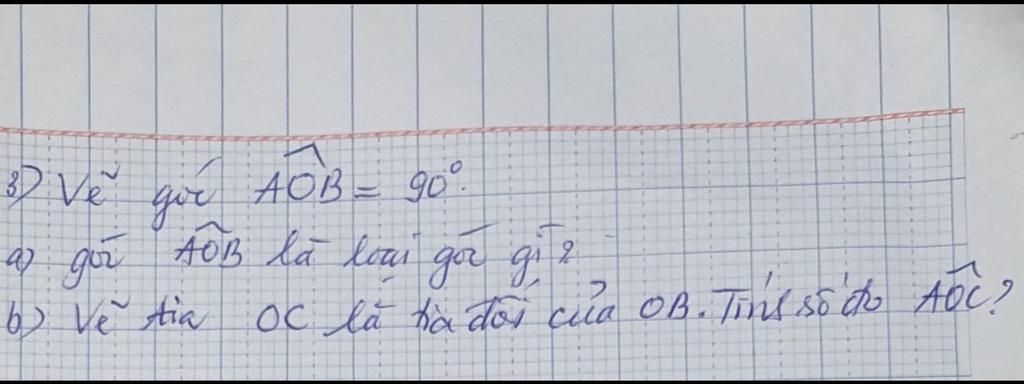 3) Vẽ góc AOB = 90°.
a) góc AOB là loại góc gì?
b) Vẽ tia OC là tia đối của OB. Tính số đo AOC?